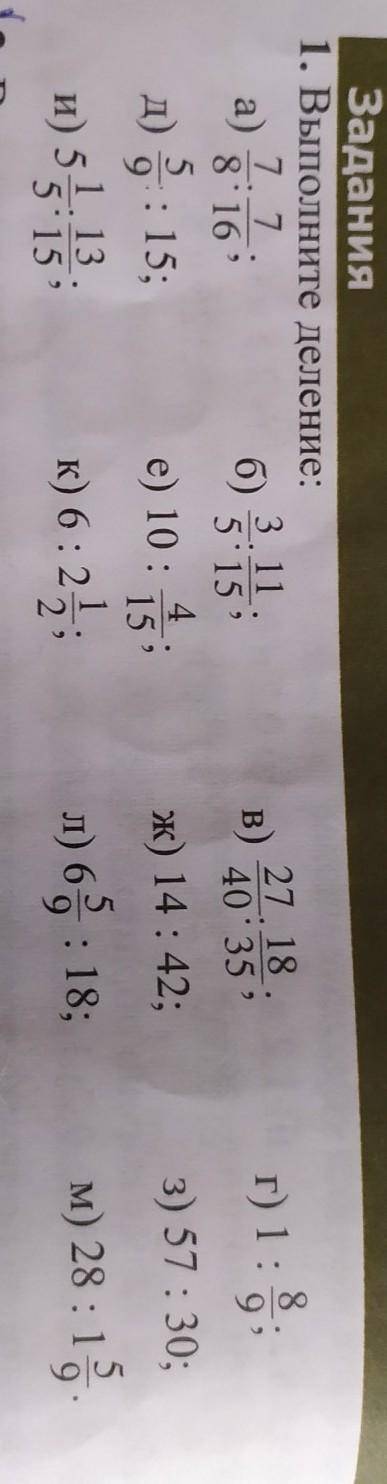 Задания
1. Выполните деление:
а) 7/8 : 7/16; б) 3/5 : 11/15; в) 27/40 : 18/35; г) 1 : 8/9;
д) 5/9 : 15; е) 10 : 4/15; ж) 14 : 42; з) 57 : 30;
и) 5 1/5 : 13/15; к) 6 : 2 1/2; л) 6 5/9 : 18; м) 28 : 1 5/9.